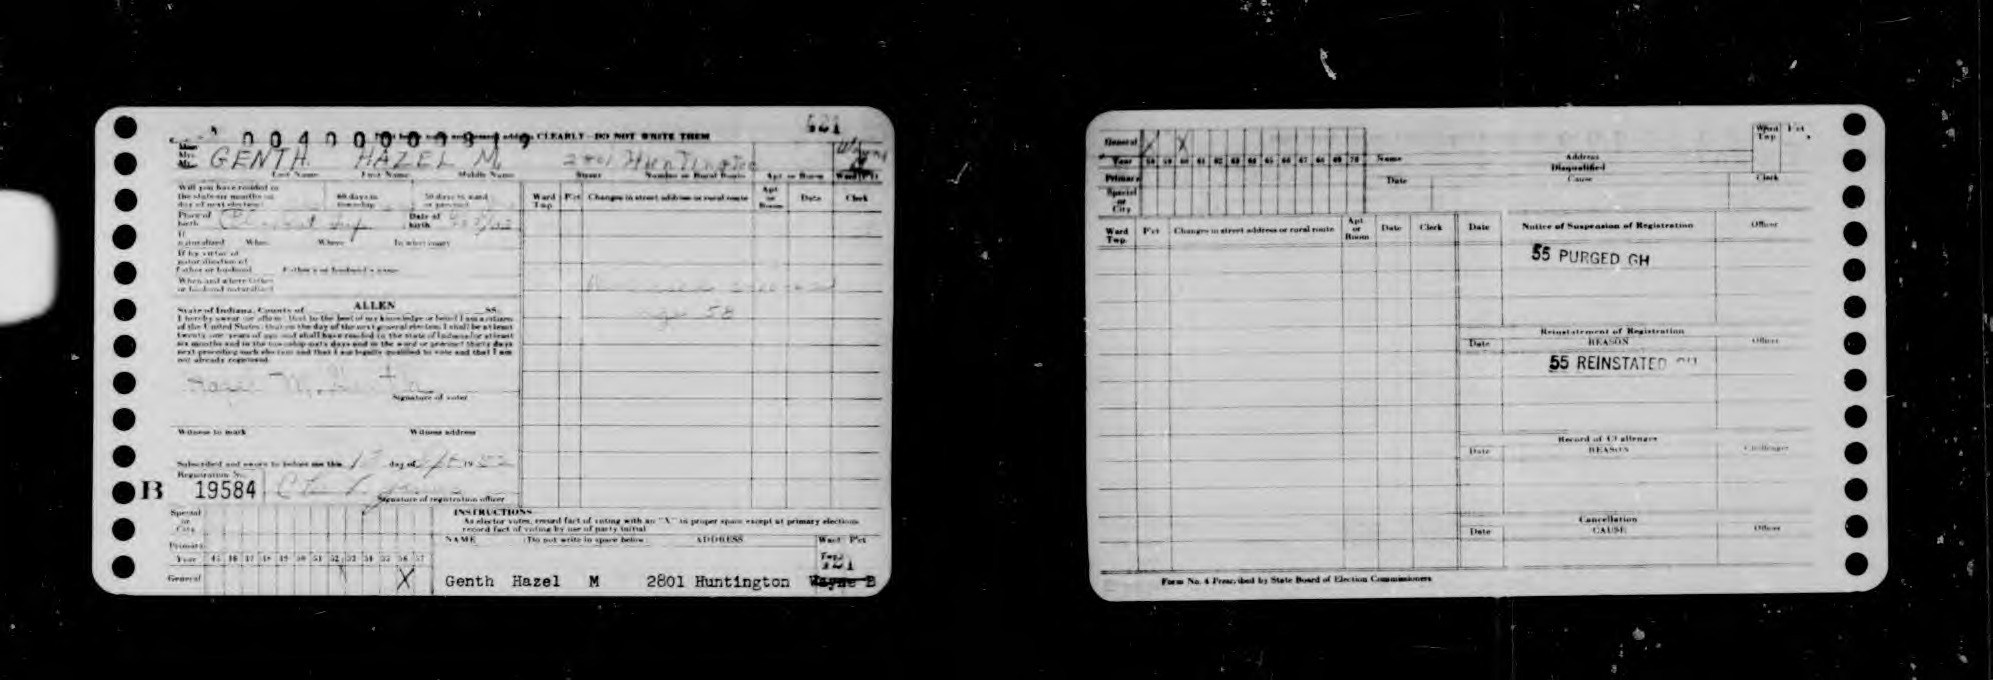 004000009819
CLEARLY - DO NOT WRITE THEM
621
GENTH HAZEL M. 2801 Huntington
Last Name First Name Middle Name Street Number or Rural Route Apt. or Room
Will you have resided in
the state six months on
day of next election?
60 days in
township
30 days in ward
or precinct
Place of
birth
Date of
birth
If
naturalized When Where In what court
If by virtue of
naturalization of
Father or husband Father's or husband's name
When and where father
or husband naturalized
ALLEN
State of Indiana, County of SS.
I hereby swear (or affirm) that to the best of my knowledge or belief I am a citizen
of the United States; that on the day of the next general election, I shall be at least
twenty-one years of age and shall have resided in the state of Indiana for at least
six months and in the township sixty days and in the ward or precinct thirty days
next preceding such election and that I am legally qualified to vote and that I am
not already registered.
Hazel M. Genth
Signature of voter
Witness to mark Witness address
Subscribed and sworn to before me this day of 19 52
Registration No.
B 19584
Signature of registration officer
Ward
Twp.
Pct Changes in street address or rural route Apt
or
Room
Date Clerk
58
INSTRUCTIONS
As elector votes, record fact of voting with an "X" in proper space except at primary elections
record fact of voting by use of party initial
Special
or
City
Primary
Year 45 46 47 48 49 50 51 52 53 54 55 56 57
General X
NAME (Do not write in space below) ADDRESS Ward Pct
Twp.
621
Genth Hazel M 2801 Huntington Wayne B
General X
Year 58 59 60 61 62 63 64 65 66 67 68 69 70
Primary
Special
or
City
Name Address
Ward
Twp
Pct
Disqualified
Date Cause Clerk
Ward
Twp.
Pct Changes in street address or rural route Apt
or
Room
Date Clerk
Date Notice of Suspension of Registration Officer
55 PURGED GH
Reinstatement of Registration
Date REASON Officer
55 REINSTATED GH
Record of Challenges
Date REASON Challenger
Cancellation
Date CAUSE Officer
Form No. 4 Prescribed by State Board of Election Commissioners